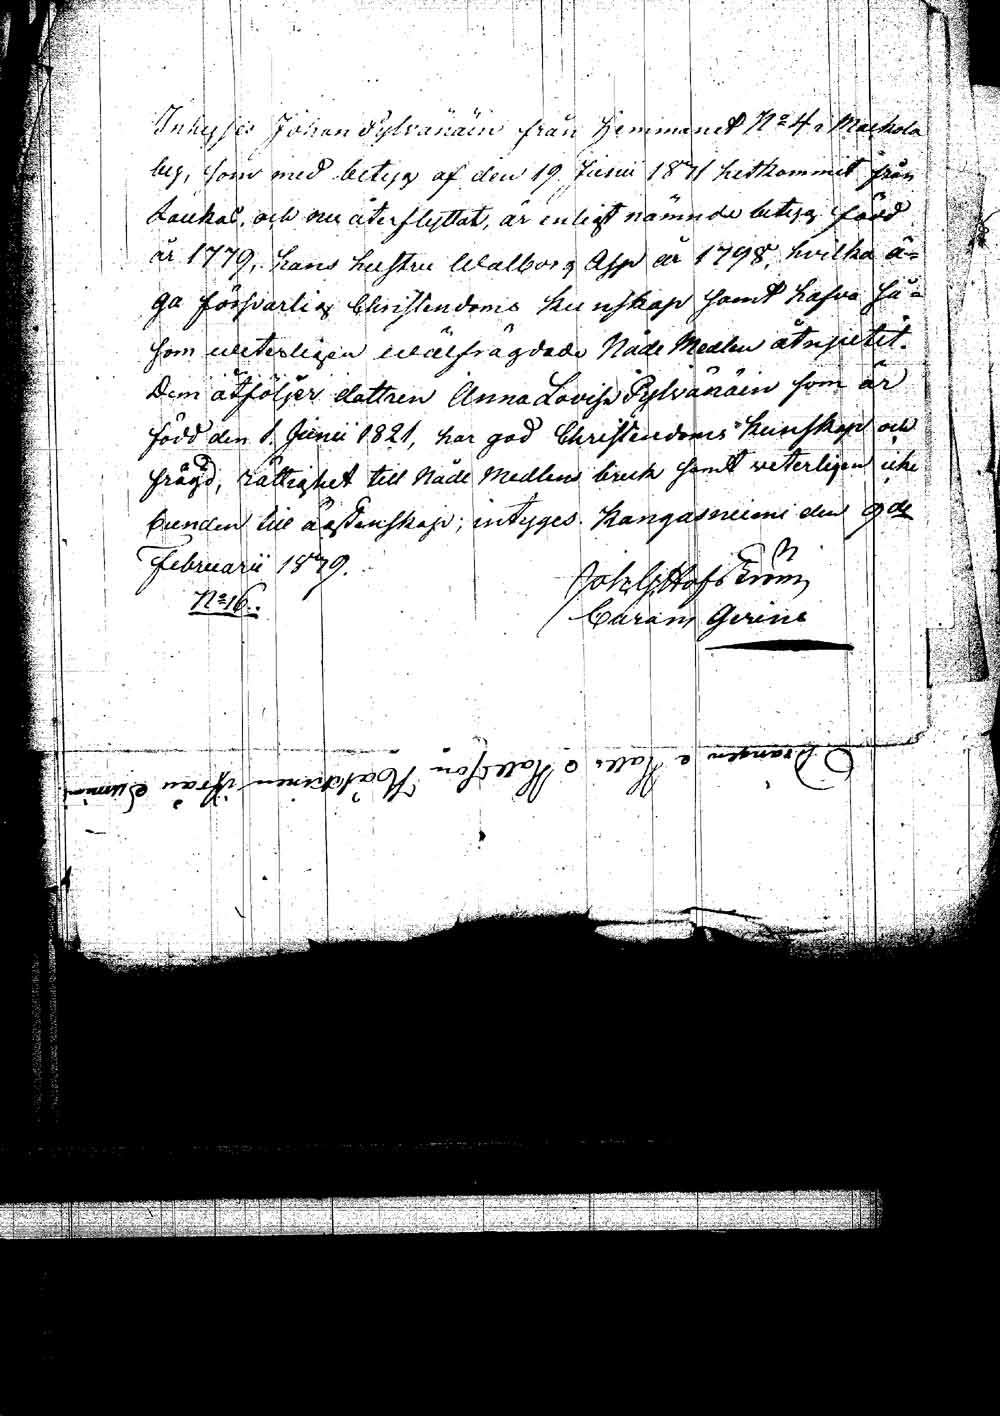 Inhyses Johan Pylvänäin från Hemmanet No 4 i Maukola
by, som med betyg af den 19 Junii 1871 hitkommit från
Laukas, och nu återflyttat, är enligt nämnde betyg född
år 1779, hans hustru Walborg Asp år 1798, hvilka ä-
ga försvarlig Christendoms kunskap samt hafva så-
som veterligen wälfrägdade Nåde Medlen åtnjutit.
Dem åtföljer dottren Anna Lovisa Pylvänäin som är
född den 1. Junii 1821, har god Christendoms kunskap och
frägd, rättighet till Nåde Medlens bruk samt veterligen icke
bunden till ägtenskap; intygas. Kangasniemi den 9de
Februarii 1879.
No 16.
Joh. G. Hofström
Curam Gerens
Drängen Matts Mattsson från